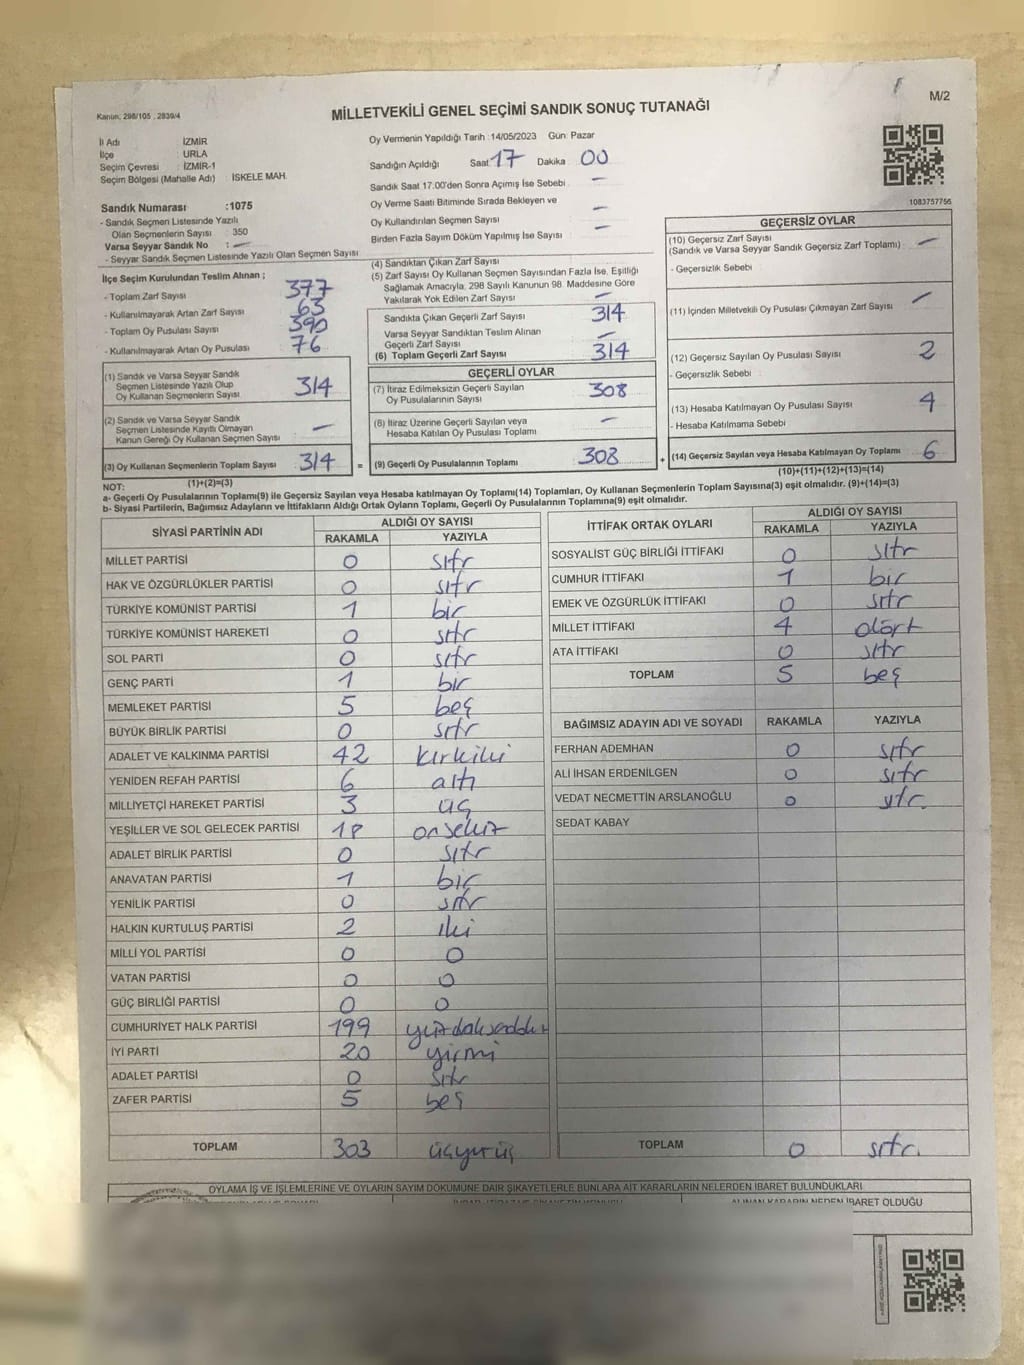 M/2
Kanun, 298/105 , 2839/4
MİLLETVEKİLİ GENEL SEÇİMİ SANDIK SONUÇ TUTANAĞI
İl Adı İZMİR
İlçe URLA
Seçim Çevresi : İZMİR-1
Seçim Bölgesi (Mahalle Adı) : İSKELE MAH.
Sandık Numarası :1075
- Sandık Seçmen Listesinde Yazılı
Olan Seçmenlerin Sayısı : 350
Varsa Seyyar Sandık No : —
- Seyyar Sandık Seçmen Listesinde Yazılı Olan Seçmen Sayısı
Oy Vermenin Yapıldığı Tarih :14/05/2023 Gün: Pazar
Sandığın Açıldığı Saat 17 Dakika 00
Sandık Saat 17.00'den Sonra Açımış İse Sebebi : —
Oy Verme Saati Bitiminde Sırada Bekleyen ve
Oy Kullandırılan Seçmen Sayısı : —
Birden Fazla Sayım Döküm Yapılmış İse Sayısı : —
1083757756
İlçe Seçim Kurulundan Teslim Alınan ;
- Toplam Zarf Sayısı 377
- Kullanılmayarak Artan Zarf Sayısı 63
- Toplam Oy Pusulası Sayısı 390
- Kullanılmayarak Artan Oy Pusulası 76
(1) Sandık ve Varsa Seyyar Sandık
Seçmen Listesinde Yazılı Olup
Oy Kullanan Seçmenlerin Sayısı 314
(2) Sandık ve Varsa Seyyar Sandık
Seçmen Listesinde Kayıtlı Olmayan
Kanun Gereği Oy Kullanan Seçmen Sayısı —
(3) Oy Kullanan Seçmenlerin Toplam Sayısı 314 =
(1)+(2)=(3)
(4) Sandıktan Çıkan Zarf Sayısı
(5) Zarf Sayısı Oy Kullanan Seçmen Sayısından Fazla İse, Eşitliği
Sağlamak Amacıyla, 298 Sayılı Kanunun 98. Maddesine Göre
Yakılarak Yok Edilen Zarf Sayısı —
Sandıkta Çıkan Geçerli Zarf Sayısı 314
Varsa Seyyar Sandıktan Teslim Alınan
Geçerli Zarf Sayısı —
(6) Toplam Geçerli Zarf Sayısı 314
GEÇERLİ OYLAR
(7) İtiraz Edilmeksizin Geçerli Sayılan
Oy Pusulalarının Sayısı 308
(8) İtiraz Üzerine Geçerli Sayılan veya
Hesaba Katılan Oy Pusulası Toplamı —
(9) Geçerli Oy Pusulalarının Toplamı 308 +
GEÇERSİZ OYLAR
(10) Geçersiz Zarf Sayısı
(Sandık ve Varsa Seyyar Sandık Geçersiz Zarf Toplamı) : —
- Geçersizlik Sebebi
(11) İçinden Milletvekili Oy Pusulası Çıkmayan Zarf Sayısı —
(12) Geçersiz Sayılan Oy Pusulası Sayısı 2
- Geçersizlik Sebebi
(13) Hesaba Katılmayan Oy Pusulası Sayısı 4
- Hesaba Katılmama Sebebi
(14) Geçersiz Sayılan veya Hesaba Katılmayan Oy Toplamı 6
(10)+(11)+(12)+(13)=(14)
NOT:
a- Geçerli Oy Pusulalarının Toplamı(9) ile Geçersiz Sayılan veya Hesaba katılmayan Oy Toplamı(14) Toplamları, Oy Kullanan Seçmenlerin Toplam Sayısına(3) eşit olmalıdır. (9)+(14)=(3)
b- Siyasi Partilerin, Bağımsız Adayların ve İttifakların Aldığı Ortak Oyların Toplamı, Geçerli Oy Pusulalarının Toplamına(9) eşit olmalıdır.
SİYASİ PARTİNİN ADI ALDIĞI OY SAYISI
RAKAMLA YAZIYLA
MİLLET PARTİSİ 0 sıfır
HAK VE ÖZGÜRLÜKLER PARTİSİ 0 sıfır
TÜRKİYE KOMÜNİST PARTİSİ 1 bir
TÜRKİYE KOMÜNİST HAREKETİ 0 sıfır
SOL PARTİ 0 sıfır
GENÇ PARTİ 1 bir
MEMLEKET PARTİSİ 5 beş
BÜYÜK BİRLİK PARTİSİ 0 sıfır
ADALET VE KALKINMA PARTİSİ 42 kırkiki
YENİDEN REFAH PARTİSİ 6 altı
MİLLİYETÇİ HAREKET PARTİSİ 3 üç
YEŞİLLER VE SOL GELECEK PARTİSİ 18 onsekiz
ADALET BİRLİK PARTİSİ 0 sıfır
ANAVATAN PARTİSİ 1 bir
YENİLİK PARTİSİ 0 sıfır
HALKIN KURTULUŞ PARTİSİ 2 iki
MİLLİ YOL PARTİSİ 0 0
VATAN PARTİSİ 0 0
GÜÇ BİRLİĞİ PARTİSİ 0 0
CUMHURİYET HALK PARTİSİ 199 yüzdoksandokuz
İYİ PARTİ 20 yirmi
ADALET PARTİSİ 0 sıfır
ZAFER PARTİSİ 5 beş
TOPLAM 303 üçyüzüç
İTTİFAK ORTAK OYLARI ALDIĞI OY SAYISI
RAKAMLA YAZIYLA
SOSYALİST GÜÇ BİRLİĞİ İTTİFAKI 0 sıfır
CUMHUR İTTİFAKI 1 bir
EMEK VE ÖZGÜRLÜK İTTİFAKI 0 sıfır
MİLLET İTTİFAKI 4 dört
ATA İTTİFAKI 0 sıfır
TOPLAM 5 beş
BAĞIMSIZ ADAYIN ADI VE SOYADI RAKAMLA YAZIYLA
FERHAN ADEMHAN 0 sıfır
ALİ İHSAN ERDENİLGEN 0 sıfır
VEDAT NECMETTİN ARSLANOĞLU 0 sıfır.
SEDAT KABAY
TOPLAM 0 sıfır.
OYLAMA İŞ VE İŞLEMLERİNE VE OYLARIN SAYIM DÖKÜMÜNE DAİR ŞİKAYETLERLE BUNLARA AİT KARARLARIN NELERDEN İBARET BULUNDUKLARI
ALINAN KARARIN NEDEN İBARET OLDUĞU